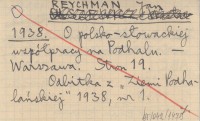 REYCHMAN Jan
1938. O polsko-słowackiej
współpracy na Podhalu. —
Warszawa. Stron 19.
Odbitka z „Ziemi Podha-
lańskiej" 1938, nr 1.